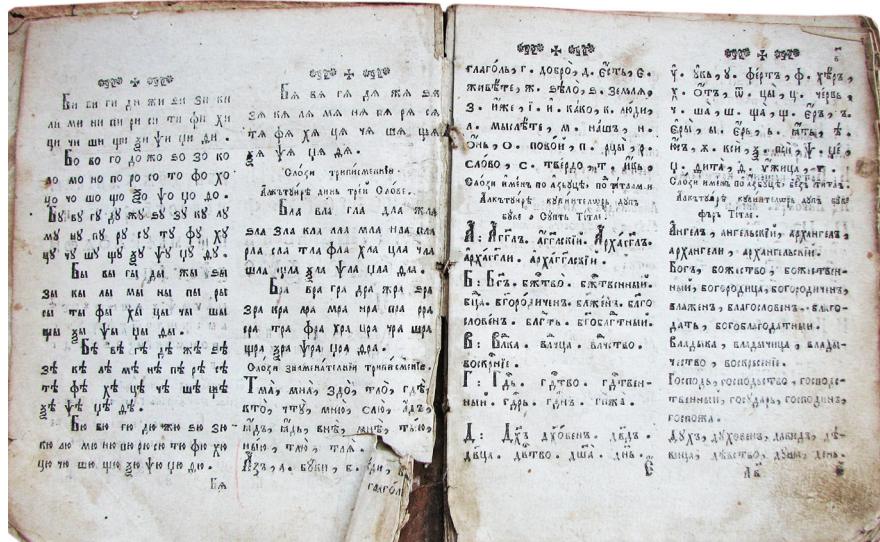 Би ви ги ди жи ѕи зи ки
ли ми ни пи ри си ти фи хи
ци чи ши щи ѯи ѱи ѳи ди .
Бо во го до жо ѕо зо ко
ло мо но по ро со то фо хо
цо чо шо що ѯо ѱо ѳо до .
Бу ву гу ду жу ѕу зу ку лу
му ну пу ру су ту фу ху
цу чу шу щу ѯу ѱу ѳу ду .
Бы вы гы ды жы ѕы
зы кы лы мы ны пы ры
сы ты фы хы цы чы шы
щы ѯы ѱы ѳы ды .
Бѣ вѣ гѣ дѣ жѣ ѕѣ
зѣ кѣ лѣ мѣ нѣ пѣ рѣ сѣ
тѣ фѣ хѣ цѣ чѣ шѣ щѣ
ѯѣ ѱѣ ѳѣ дѣ .
Бю вю гю дю жю ѕю зю
кю лю мю ню пю рю сю тю фю хю
цю чю шю щю ѯю ѱю ѳю дю .
Бѧ
Бѧ вѧ гѧ дѧ жѧ ѕѧ
зѧ кѧ лѧ мѧ нѧ пѧ рѧ сѧ
тѧ фѧ хѧ цѧ чѧ шѧ щѧ
ѯѧ ѱѧ ѳѧ дѧ .
Сло́зи трипи́сменнїи .
Алкътуи́рѣ динь трей Слове .
Бла вла гла дла жла
ѕла зла кла лла мла нла пла
рла сла тла фла хла цла чла
шла щла ѯла ѱла ѳла дла .
Бра вра гра дра жра ѕра
зра кра лра мра нра пра рра
сра тра фра хра цра чра шра
щра ѯра ѱра ѳра дра .
Слози знаменателнїи трипи́сменнїе .
Тма̀, мна̀, здо̀, тло̀, гдѣ̀,
кто̀, что̀, мню̀, слю̀, а́дъ,
ню̀, тлю̀, тла̀ .
А҆́зъ, а . бꙋ́ки, б .
глаго́л
глаго́ль, г . добро̀, д . є҆́сть, є .
живѣ́те, ж . ѕѣло̀, ѕ . землѧ̀,
з . и҆́же, и҆ . ї . ка́ко, к . лю́ди,
л . мыслѣ́те, м . на́шъ, н .
ѻ҆́нь, о . поко́й, п . рцы̀, р .
сло́во, с . тве́рдо, т . и҆́къ,
Слози и҆ме́нъ по а҆́збуцѣ по тітлам . и
Алкътуи́рѣ кувинтелѡрь дупъ
буке . Суптъ Тітле :
А҃ : А҆́гг҃лъ . а҆́гг҃лскїй . А҆рха́гг҃лъ .
а҆рха́гг҃ли . а҆рха́гг҃лскїе .
Б : Бг҃ъ . бж҃тво . бж҃твенный .
бц҃а . бг҃оро́диченъ . бл҃же́нъ . бл҃го
слове́нъ . бл҃гть . бг҃обл҃гтный .
В : Вл҃ка . вл҃чца . вл҃чство .
воскр҃нїе .
Г : Гд҃ь . гд҃тво . гд҃твен-
ный . гд҃рь . гд҃нъ . гж҃а .
Д : Дх҃ъ дх҃ове́нъ . дв҃дъ .
дв҃ца . дв҃тво . дш҃а . дн҃ь .
ꙋ҆́ . у҆́къ, у . фе́ртъ, ф . хѣ́ръ,
х . ѻ҆́тъ, ѿ . цы̀, ц . че́рвь,
ч . ша̀, ш . ща̀, щ . є҆́ръ, ъ .
є҆ры̀, ы . є҆́рь, ь . ꙗ҆́ть, ѣ .
ю҆́съ, ж . ксѝ , ѯ . псѝ, ѱ .
Слози и҆ме́нъ по а҆́збуцѣ безъ ті́тлъ .
Алкътуи́рѣ кувинтелѡрь дупъ буке
фъръ Ті́тле :
Ангелъ, ангельскїй, архангелъ,
архангели, архангельскїе .
Богъ, божество, божествен-
ный, богородица, богородиченъ,
блаженъ, благословенъ, благо-
дать, богоблагодатный .
Владыка, владычица, влады-
чество, воскресенїе .
Господь, господьство, господс-
твенный, государь, господинъ,
госпожа .
Духъ, духовенъ, давидъ, дѣ-
вица, дѣвство, душа, день .